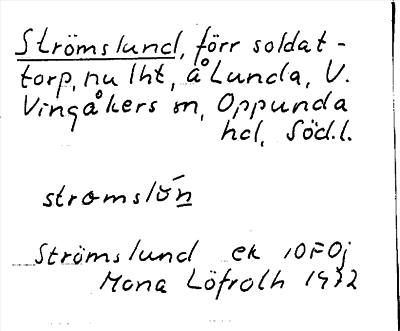 Strömslund, förr soldat-
torp, nu lht, å Lunda, V.
Vingåkers sn, Oppunda
hd, Söd.l.
strømslún
Strömslund ek 10F0j
Mona Löfroth 1972